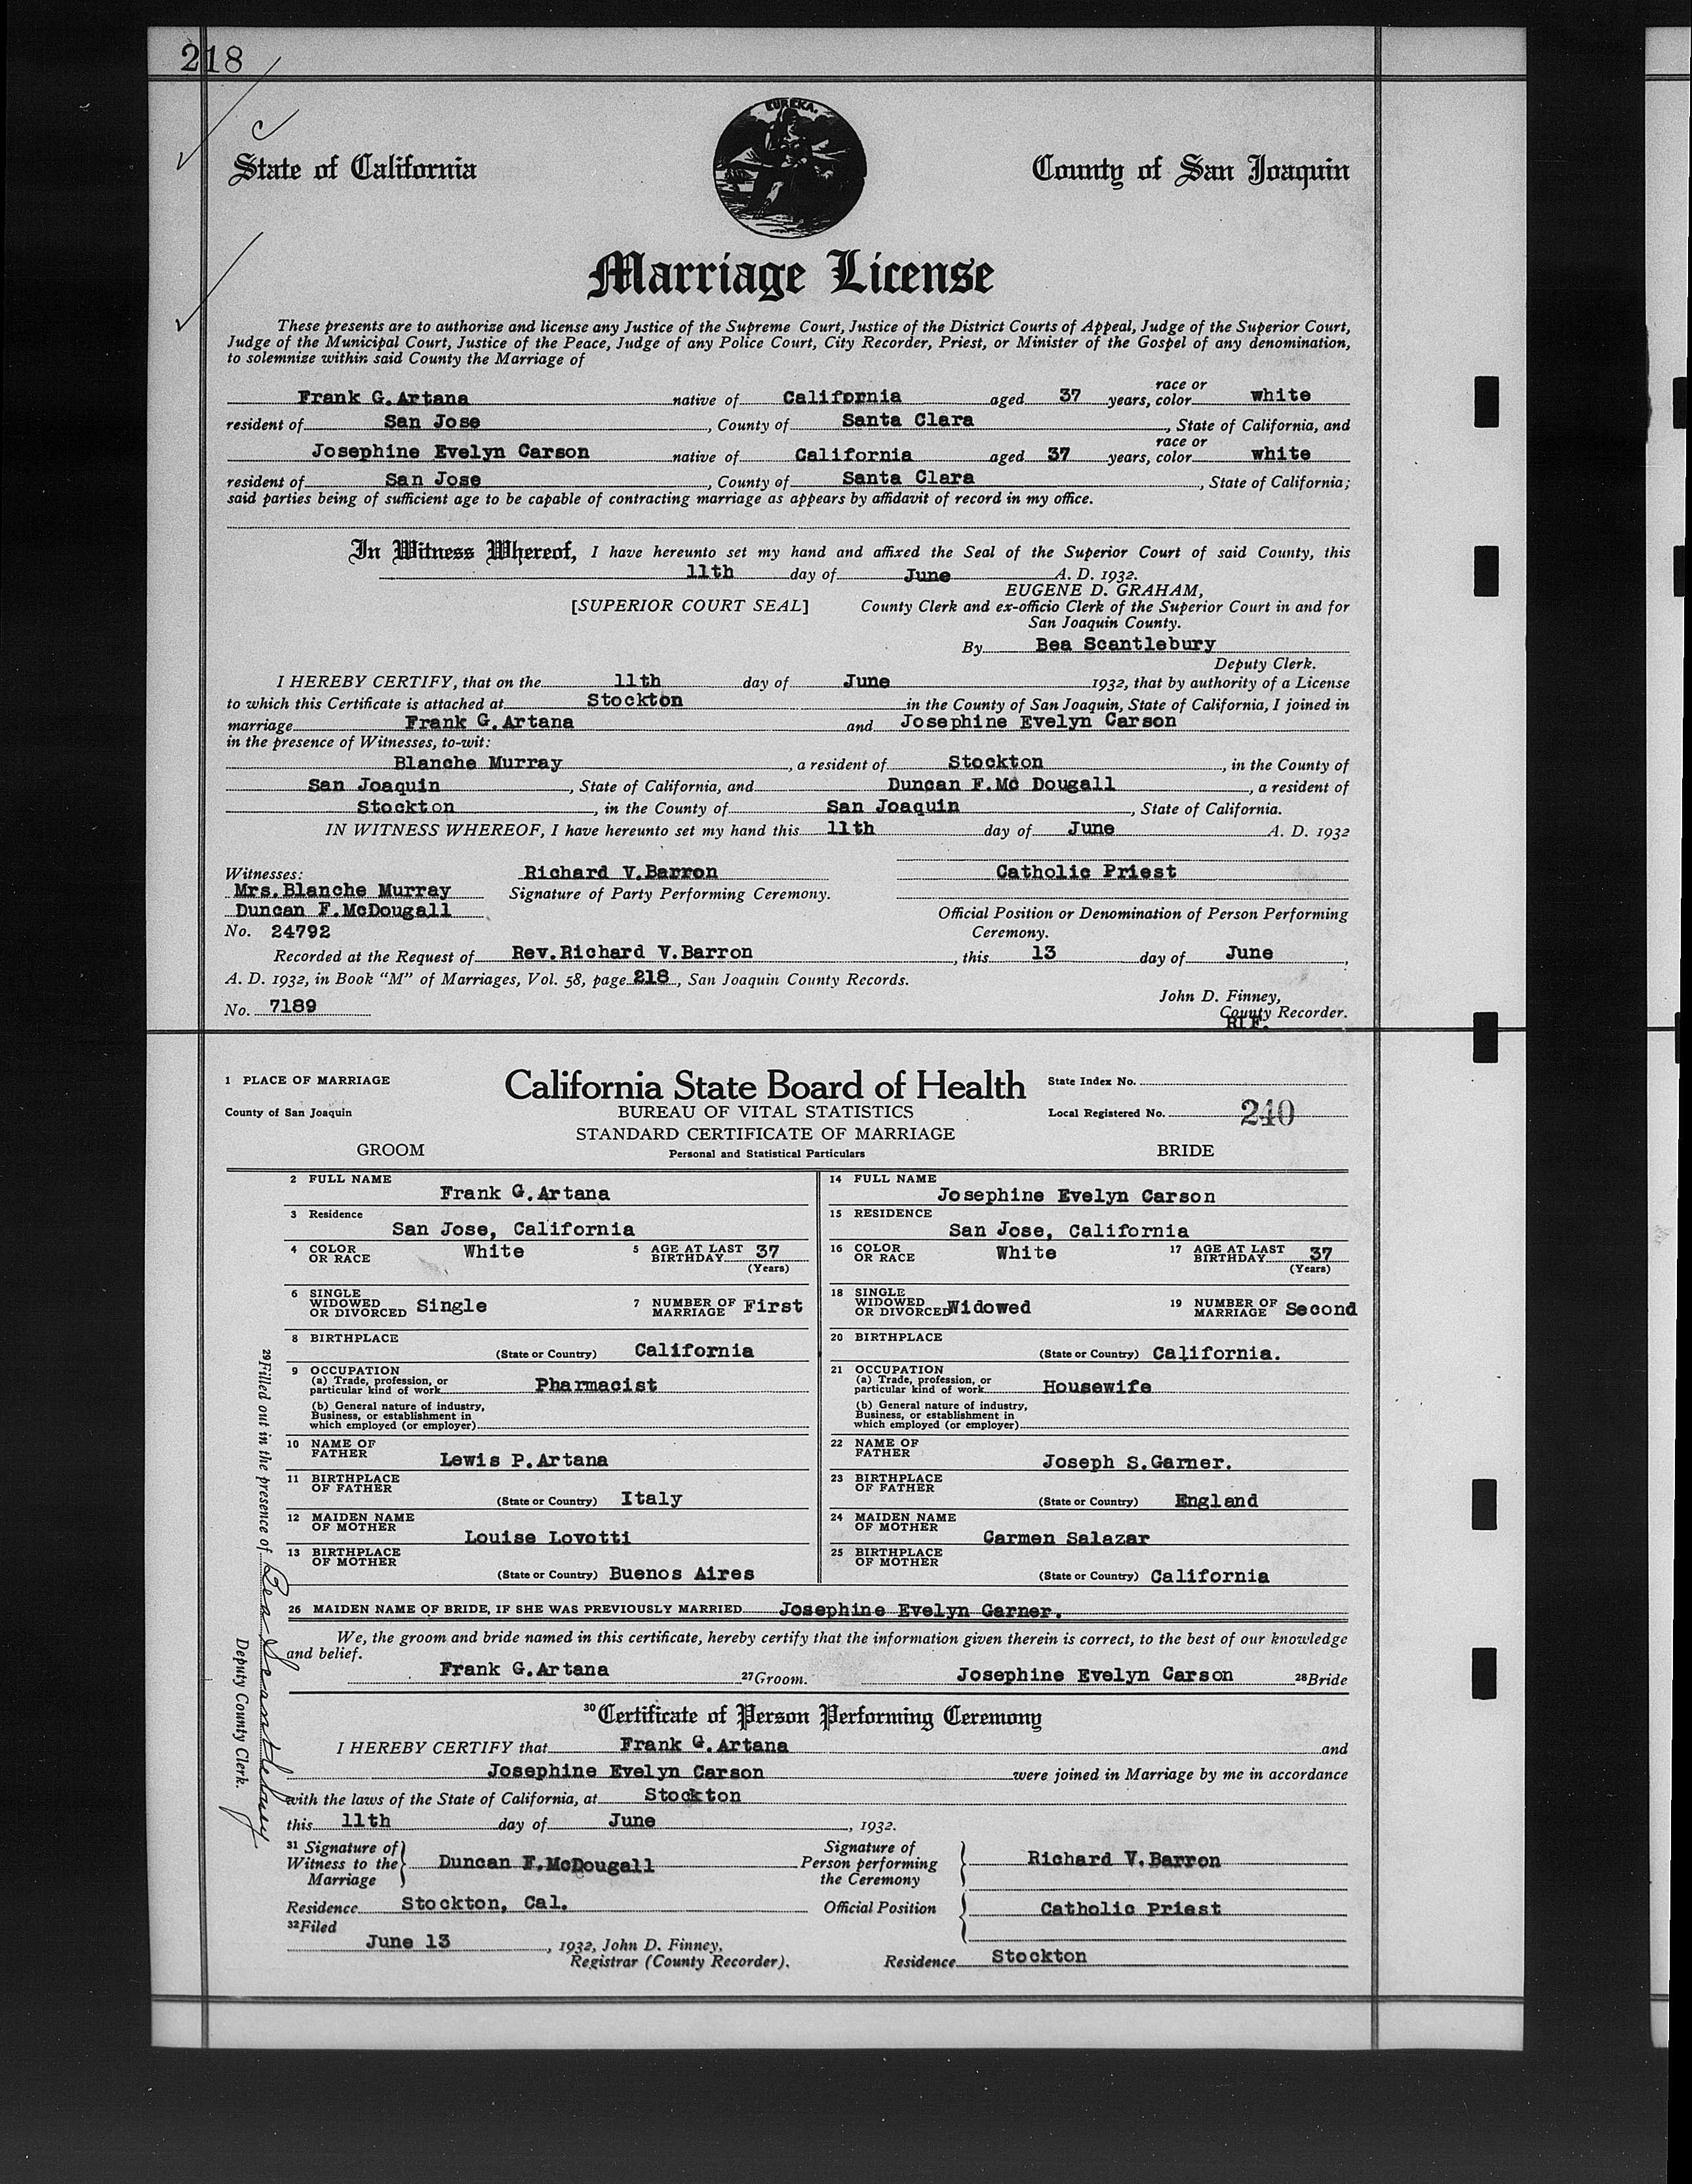 218
EUREKA.
State of California
County of San Joaquin
Marriage License
These presents are to authorize and license any Justice of the Supreme Court, Justice of the District Courts of Appeal, Judge of the Superior Court,
Judge of the Municipal Court, Justice of the Peace, Judge of any Police Court, City Recorder, Priest, or Minister of the Gospel of any denomination,
to solemnize within said County the Marriage of
Frank G. Artana native of California aged 37 years, race or color white
resident of San Jose, County of Santa Clara, State of California, and
Josephine Evelyn Carson native of California aged 37 years, race or color white
resident of San Jose, County of Santa Clara, State of California;
said parties being of sufficient age to be capable of contracting marriage as appears by affidavit of record in my office.
In Witness Whereof, I have hereunto set my hand and affixed the Seal of the Superior Court of said County, this
11th day of June A. D. 1932.
EUGENE D. GRAHAM,
[SUPERIOR COURT SEAL] County Clerk and ex-officio Clerk of the Superior Court in and for
San Joaquin County.
By Bea Scantlebury
Deputy Clerk.
I HEREBY CERTIFY, that on the 11th day of June 1932, that by authority of a License
to which this Certificate is attached at Stockton in the County of San Joaquin, State of California, I joined in
marriage Frank G. Artana and Josephine Evelyn Carson
in the presence of Witnesses, to-wit:
Blanche Murray, a resident of Stockton, in the County of
San Joaquin, State of California, and Duncan F. Mc Dougall, a resident of
Stockton, in the County of San Joaquin, State of California.
IN WITNESS WHEREOF, I have hereunto set my hand this 11th day of June A. D. 1932
Witnesses: Richard V. Barron Catholic Priest
Mrs. Blanche Murray Signature of Party Performing Ceremony.
Duncan F. McDougall Official Position or Denomination of Person Performing
No. 24792 Ceremony.
Recorded at the Request of Rev. Richard V. Barron, this 13 day of June,
A. D. 1932, in Book “M” of Marriages, Vol. 58, page 218, San Joaquin County Records.
John D. Finney,
No. 7189 County Recorder.
1 PLACE OF MARRIAGE California State Board of Health State Index No.
County of San Joaquin BUREAU OF VITAL STATISTICS Local Registered No. 240
STANDARD CERTIFICATE OF MARRIAGE
GROOM Personal and Statistical Particulars BRIDE
2 FULL NAME Frank G. Artana
14 FULL NAME Josephine Evelyn Carson
3 Residence San Jose, California
15 RESIDENCE San Jose, California
4 COLOR OR RACE White 5 AGE AT LAST BIRTHDAY 37 (Years)
16 COLOR OR RACE White 17 AGE AT LAST BIRTHDAY 37 (Years)
6 SINGLE WIDOWED OR DIVORCED Single 7 NUMBER OF MARRIAGE First
18 SINGLE WIDOWED OR DIVORCED Widowed 19 NUMBER OF MARRIAGE Second
8 BIRTHPLACE (State or Country) California
20 BIRTHPLACE (State or Country) California.
9 OCCUPATION
(a) Trade, profession, or
particular kind of work Pharmacist
(b) General nature of industry,
Business, or establishment in
which employed (or employer)
21 OCCUPATION
(a) Trade, profession, or
particular kind of work Housewife
(b) General nature of industry,
Business, or establishment in
which employed (or employer)
10 NAME OF FATHER Lewis P. Artana
22 NAME OF FATHER Joseph S. Garner.
11 BIRTHPLACE OF FATHER (State or Country) Italy
23 BIRTHPLACE OF FATHER (State or Country) England
12 MAIDEN NAME OF MOTHER Louise Lovotti
24 MAIDEN NAME OF MOTHER Carmen Salazar
13 BIRTHPLACE OF MOTHER (State or Country) Buenos Aires
25 BIRTHPLACE OF MOTHER (State or Country) California
26 MAIDEN NAME OF BRIDE, IF SHE WAS PREVIOUSLY MARRIED Josephine Evelyn Garner.
We, the groom and bride named in this certificate, hereby certify that the information given therein is correct, to the best of our knowledge
and belief.
Frank G. Artana 27 Groom. Josephine Evelyn Carson 28 Bride
29 Filled out in the presence of Bea Scantlebury
Deputy County Clerk.
30 Certificate of Person Performing Ceremony
I HEREBY CERTIFY that Frank G. Artana and
Josephine Evelyn Carson were joined in Marriage by me in accordance
with the laws of the State of California, at Stockton
this 11th day of June, 1932.
31 Signature of Witness to the Marriage Duncan F. McDougall
Signature of Person performing the Ceremony Richard V. Barron
Residence Stockton, Cal. Official Position Catholic Priest
32 Filed
June 13, 1932, John D. Finney,
Registrar (County Recorder). Residence Stockton